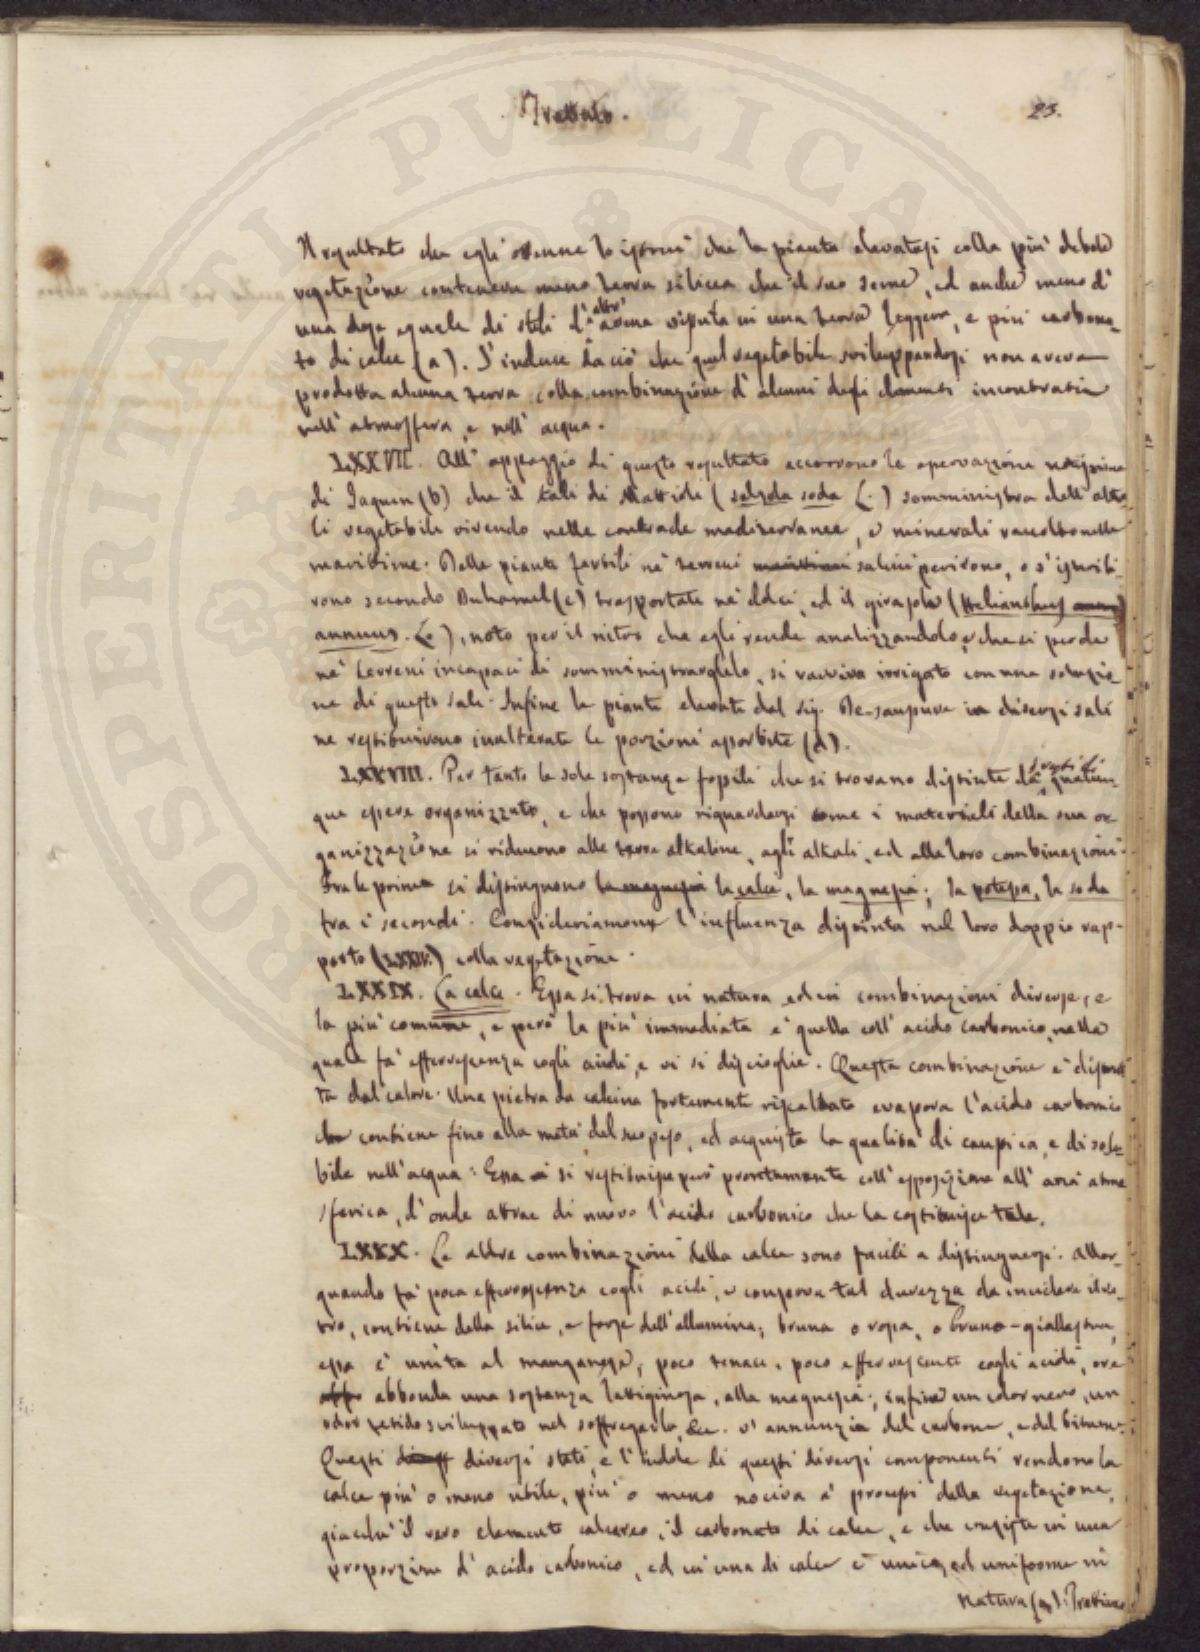 Trattato.
23.
Il resultato che egli ottenne lo istruì che la pianta elevatasi colla più debole
vegetazione conteneva meno terra silicea che il suo seme, ed anche meno d'
una dose eguale di steli d' altr' avena vissuta in una terra leggera, e più carbona-
to di calce (a). S' induce da ciò che quel vegetabile sviluppandosi non aveva
prodotta alcuna terra colla combinazione d' alcuni degli elementi incontrati
nell' atmosfera, e nell' acqua.
LXXVII. All' appoggio di questo resultato accorrono le operazioni
di Jaquen (b) che il Kali di Mattiole (salsola soda L.) somministra dell' alka-
li vegetabile vivendo nelle contrade mediterranee, e minerali raccolto nelle
marittime. Delle piante fertili ne' terreni marittimi salini perirono, o s' isterili-
rono secondo Duhamel (c) trasportate ne' dolci, ed il girasole (Helianthus
annuus. L.), noto per il nitro che egli rende analizzandolo, e che si perde
ne' terreni incapaci di somministrarglielo, si ravviva irrigato con una soluzio-
ne di questo sale. Infine le piante elevate dal sig. De-saussure in diversi sali
ne restituirono inalterate le porzioni assorbite (d).
LXXVIII. Per tanto le sole sostanze fossili che si trovano distinte da qualun-
que essere organizzato, e che possono riguardarsi come i materiali della sua or-
ganizzazione si riducono alle terre alkaline, agli alkali, ed alla loro combinazioni.
Fra le prime si distinguono la magnesia la calce, la magnesia; la potassa, la soda
tra i secondi. Consideriamone l' influenza distinta nel loro doppio rap-
porto (LXXIV.) colla vegetazione.
LXXIX. La calce. Essa si trova in natura ed in combinazioni diverse, e
la più comune, e però la più immediata è quella coll' acido carbonico, nella
quale fa' effervescenza cogli acidi, e vi si discioglie. Questa combinazione è
ta dal calore. Una pietra da calcina fortemente riscaldata evapora l' acido carbonico
che contiene fino alla metà del suo peso, ed acquista la qualità di caustica, e di solu-
bile nell' acqua: Essa si restituisce però prontamente coll' esposizione all' aria atmo
sferica, d' onde attrae di nuovo l' acido carbonico che la costituisce tale.
LXXX. Le altre combinazioni della calce sono facili a distinguersi. Allor-
quando fa' poca effervescenza cogli acidi, e comprova tal durezza da incidere il ve-
tro, contiene della silice, e forse dell' allumina; bruna o rossa, o bruno-giallastra,
essa è unita al manganese; poco tenace, poco effervescente cogli acidi, ove
abbonda una sostanza lattiginosa, alla magnesia; infine un color nero, un
odor fetido sviluppato nel soffregarlo, &c. v' annunzia del carbone, e del bitume.
Questi diversi stati, e l' indole di questi diversi componenti rendono la
calce più o meno utile, più o meno nociva a' processi della vegetazione,
giacchè il vero elemento calcareo, il carbonato di calce, e che consiste in una
proporzione d' acido carbonico, ed in una di calce è unica, ed uniforme in
natura (a).